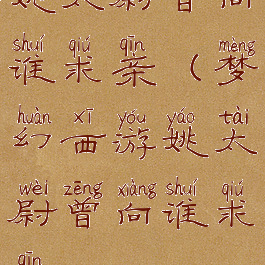 姚太尉曾向
shuí qiú qīn mèng
谁求亲（梦
huàn xī yóu yáo tài
幻西游姚太
wèi zēng xiàng shuí qiú
尉曾向谁求
qīn